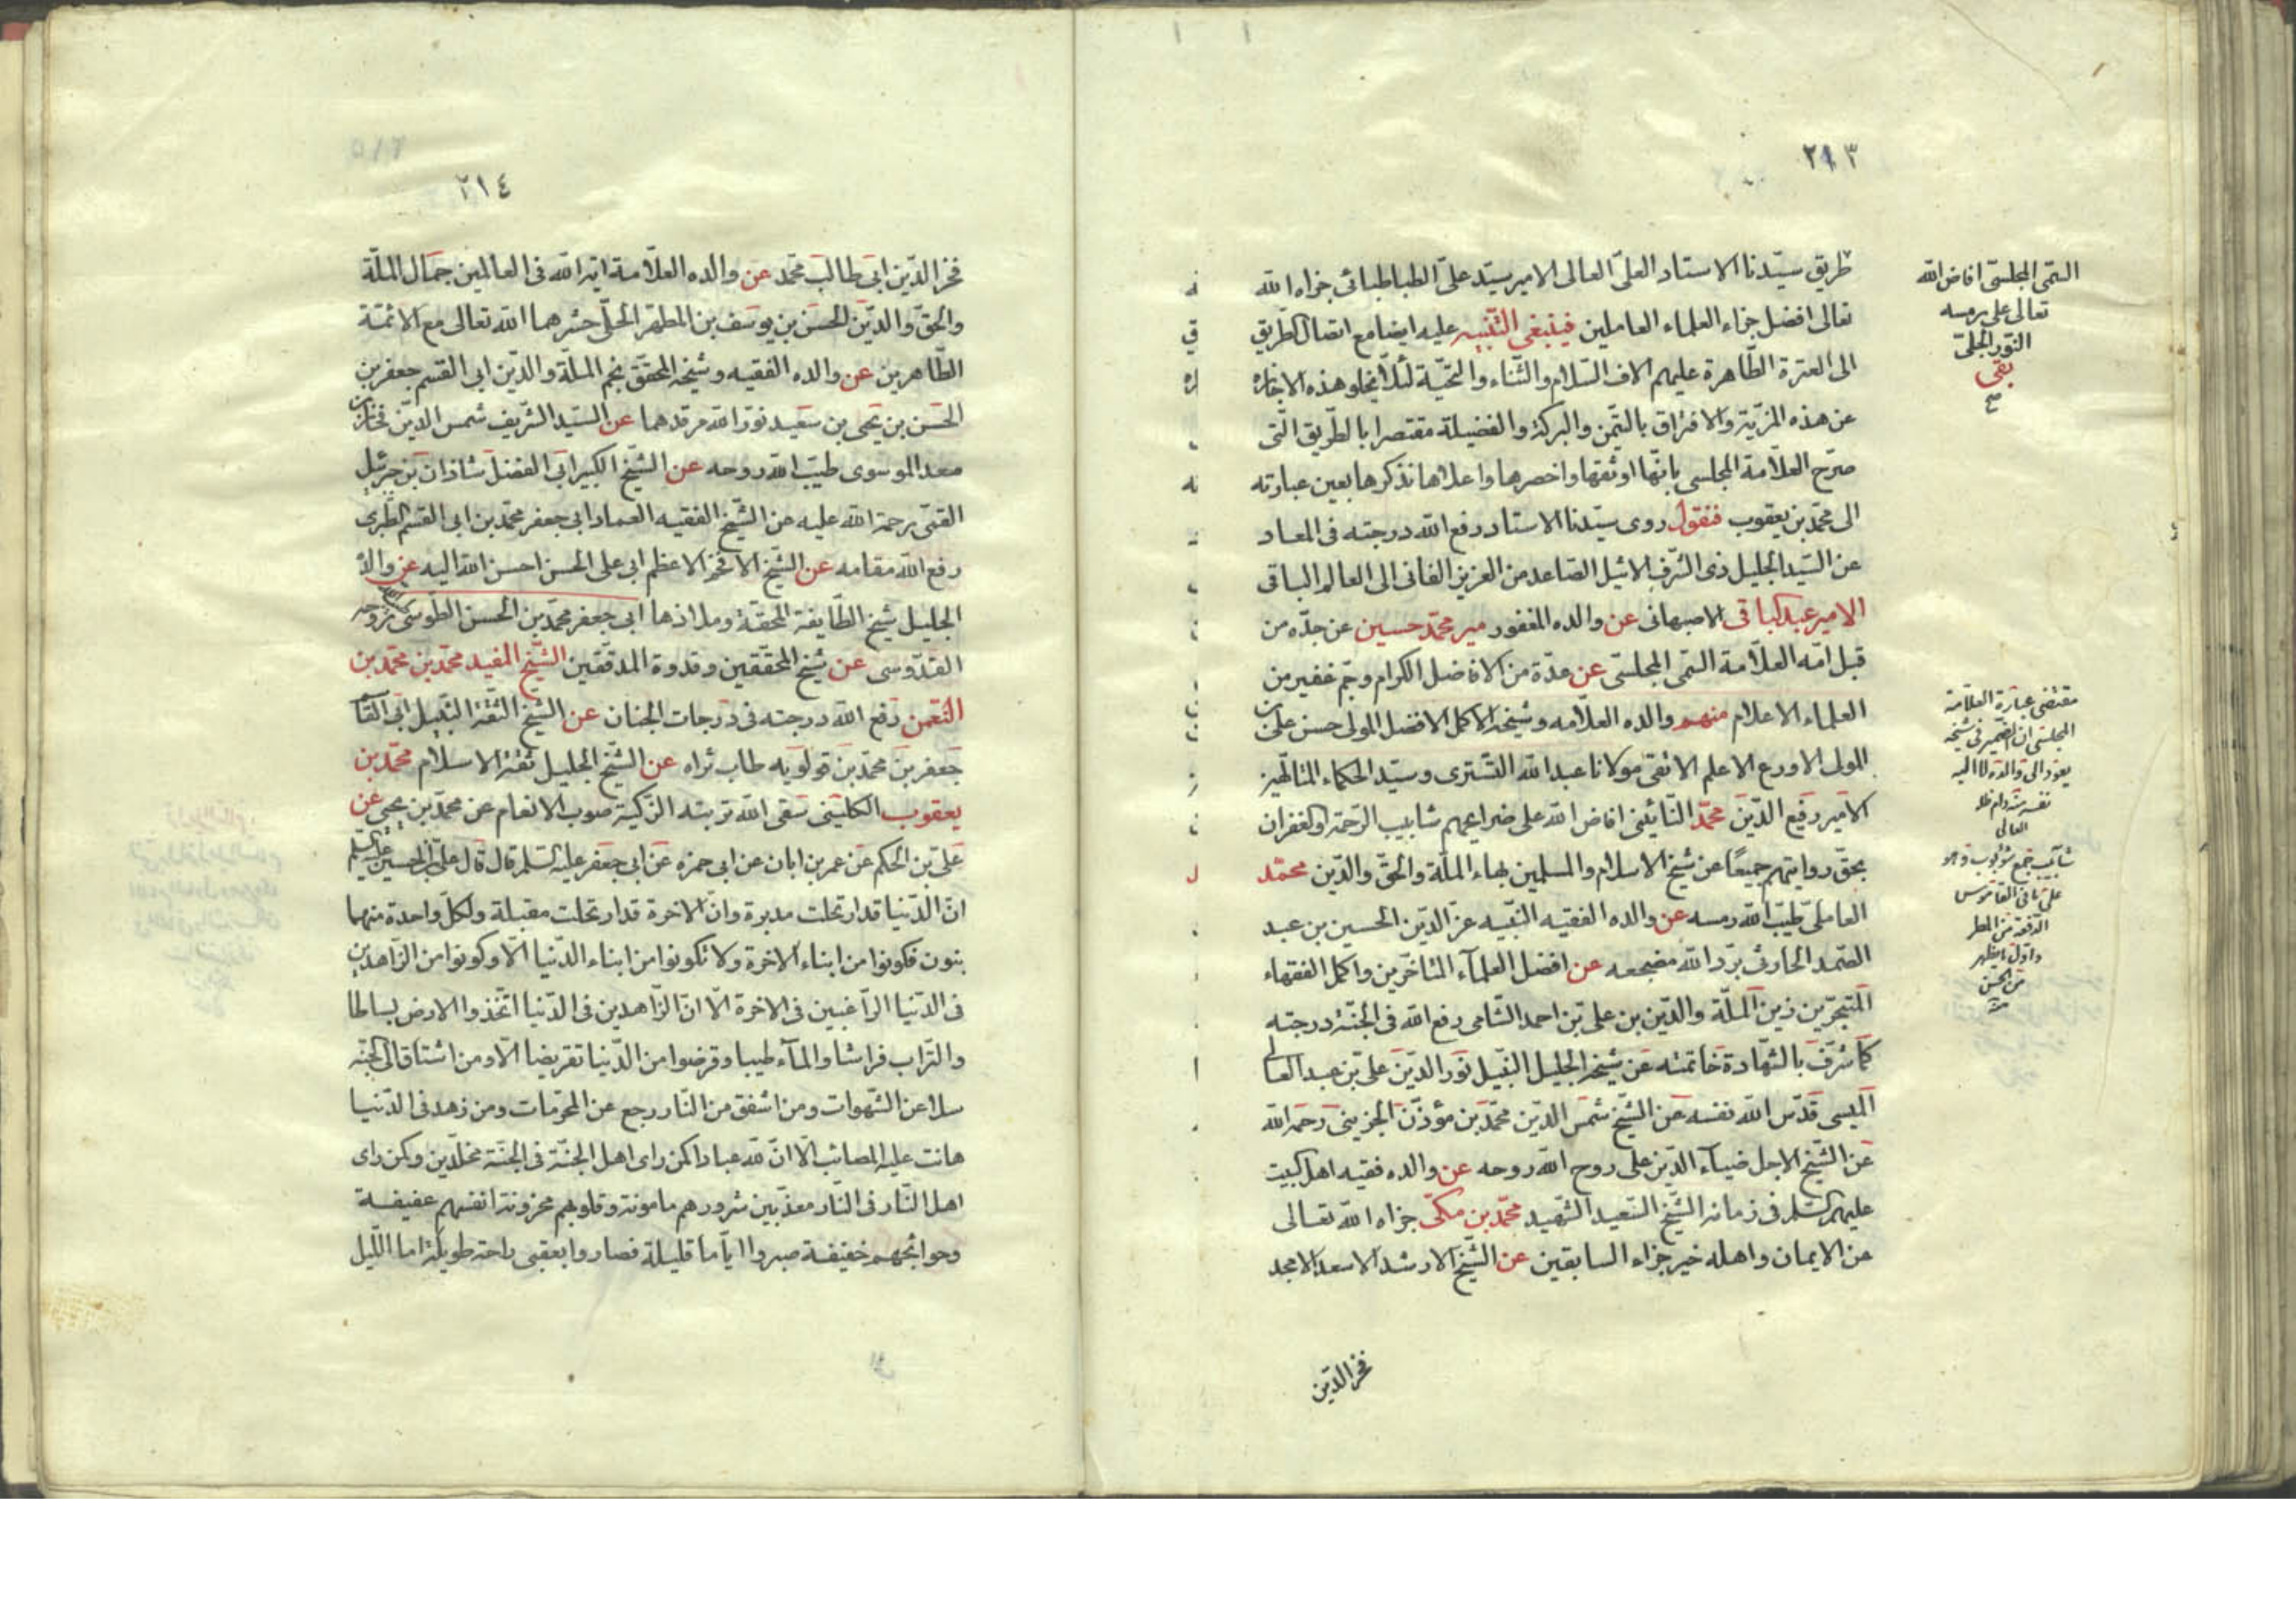 ٢١٣
طريق سيّدنا الاستاد العلىّ العالى الامير سيّد علىّ الطباطبائى جزاه الله
تعالى افضل جزاء العلماء العاملين فينبغى التّنبيه عليه ايضا مع اتصال الطّريق
الى العترة الطّاهرة عليهم الاف السّلام والثّناء والتحيّة لئلّا يخلو هذه الاجازة
عن هذه المزيّة والافتراق بالتيّمن والبركة والفضيلة مقتصرا بالطّريق الّتى
صرّح العلّامة المجلسى بانّها اوثقها واخصرها واعلاها نذكرها بعين عبارته
الى محمّد بن يعقوب فنقول روى سيّدنا الاستاد رفع الله درجته فى المعاد
عن السّيد الجليل ذى الشّرف الاثيل الصّاعد من العزيز الفانى الى العالم الباقى
الامير عبد الباقى الاصبهانى عن والده المغفور مير محمّد حسين عن جدّه من
قبل امّه العلّامة السّمى المجلسّى عن عدّة من الافاضل الكرام وجمّ غفير من
العلماء الاعلام منهم والده العلّامه وشيخه الاكمل الافضل المولى حسن على بن
المولى الاورع الاعلم الاتقى مولانا عبد الله التّسترى وسيّد الحكماء المتالّهين
الامير رفيع الدّين محمّد النّائينى افاض الله على ضرايحهم شابيب الرّحمة والغفران
بحقّ روايتهم جميعًا عن شيخ الاسلام والمسلمين بهاء الملّة والحقّ والدّين محمّد
العاملىّ طيّب الله رمسه عن والده الفقيه النّبيه عزّ الدّين الحسين بن عبد
الصّمد الحارثى برّد الله مضجعه عن افضل العلمآء المتاخّرين واكمل الفقهاء
المتبحّرين زين الملّة والدّين بن على بن احمد الشّامى رفع الله فى الجنّة درجته
كما شرّف بالشّهادة خاتمته عن شيخه الجليل النّبيل نور الدّين على بن عبد العالى
الميسى قدّس الله نفسه عن الشّيخ شمس الدّين محمّد بن مؤذّن الجزينى رحمه الله
عن الشّيخ الاجل ضياء الدّين على روح الله روحه عن والده فقيه اهل البيت
عليهم السّلم فى زمانه الشّيخ السّعيد الشّهيد محمّد بن مكّى جزاه الله تعالى
من الايمان واهله خير جزاء السابقين عن الشّيخ الارشد الاسعد الامجد
فخر الدّين
السّمى المجلسّى افاض الله
تعالى على رمسه
النّور الجلىّ
تقى
مقتضى عبارة العلّامة
المجلسى ان الضّمير فى شيخه
يعود الى والده لا اليه
نفسه دام ظله
العالى
شآبيب جمع شؤبوب وهو
على ما فى القاموس
الدّفعة من المطر
واوّل ما يظهر
من الحسن
٢١٤
فخر الدّين ابى طالب محمّد عن والده العلّامة اية الله فى العالمين جمال الملّة
والحقّ والدّين الحسن بن يوسف بن المطهر الحلّى حشرهما الله تعالى مع الائمّة
الطّاهرين عن والده الفقيه وشيخه المحقّق نجم الملّة والدّين ابى القسم جعفر بن
الحسن بن يحيى بن سعيد نوّر الله مرقدهما عن السّيد الشّريف شمس الدّين فخار بن
معد الموسوى طيّب الله روحه عن الشّيخ الكبير ابى الفضل شاذان بن جبرئيل
القمّى رحمة الله عليه عن الشّيخ الفقيه العماد ابى جعفر محمّد بن ابى القسم الطّبرى
رفع الله مقامه عن الشّيخ الافخر الاعظم ابى على الحسن احسن الله اليه عن والده
الجليل شيخ الطّايفة المحقّة وملاذها ابى جعفر محمّد بن الحسن الطّوسى روحه
القدّوسى عن شيخ المحقّقين وقدوة المدقّقين الشّيخ المفيد محمّد بن محمّد بن
النّعمن رفع الله درجته فى درجات الجنان عن الشّيخ الثّقة النّبيل ابى القا
جعفر بن محمّد بن قولويه طاب ثراه عن الشّيخ الجليل ثقة الاسلام محمّد بن
يعقوب الكلينى سقى الله تربته الزّكيّة صوب الانعام عن محمّد بن يحيى عن
على بن الحكم عن عمر بن ابان عن ابى حمزه عن ابى جعفر عليه السّلم قال قال على بن الحسين عليه السّلم
انّ الدّنيا قد ارتحلت مدبرة وانّ الاخرة قد ارتحلت مقبلة ولكلّ واحدة منهما
بنون فكونوا من ابناء الاخرة ولا تكونوا من ابناء الدّنيا الا وكونوا من الزّاهدين
فى الدّنيا الرّاغبين فى الاخرة الا انّ الزّاهدين فى الدّنيا اتّخذوا الارض بساطا
والتّراب فراشا والمآء طيبا وقرضوا من الدّنيا تقريضا الا ومن اشتاق الى الجنّه
سلا عن الشّهوات ومن اشفق من النّار رجع عن المحرّمات ومن زهد فى الدّنيا
هانت عليه المصائب الا انّ لله عبادا كمن راى اهل الجنّة فى الجنّة مخلّدين وكمن راى
اهل النّار فى النّار معذّبين شرورهم مامونة وقلوبهم محزونة انفسهم عفيفة
وحوائجهم خفيفة صبروا ايّاما قليلة فصاروا بعقبى راحة طويلة امّا اللّيل